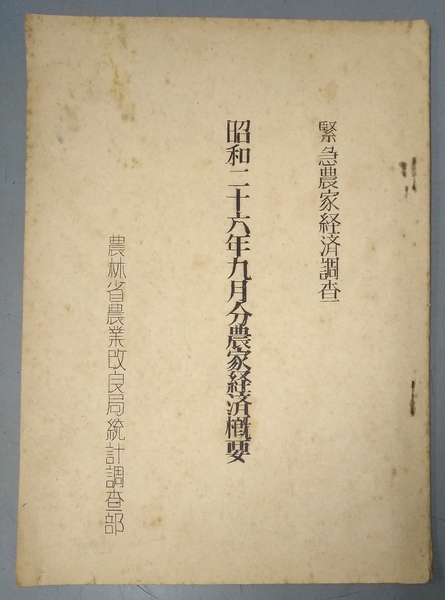 緊急農家経済調査
昭和二十六年九月分農家経済概要
農林省農業改良局統計調査部